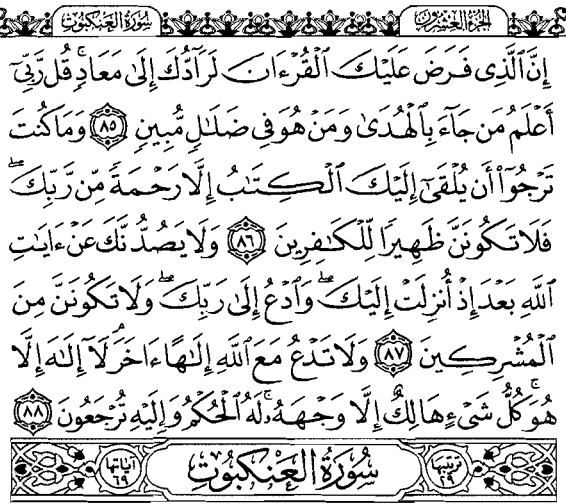 الجزء العشرون سورة العنكبوت
إِنَّ ٱلَّذِى فَرَضَ عَلَيْكَ ٱلْقُرْءَانَ لَرَآدُّكَ إِلَىٰ مَعَادٍۢ ۚ قُل رَّبِّىٓ
أَعْلَمُ مَن جَآءَ بِٱلْهُدَىٰ وَمَنْ هُوَ فِى ضَلَـٰلٍۢ مُّبِينٍۢ ٨٥ وَمَا كُنتَ
تَرْجُوٓا۟ أَن يُلْقَىٰٓ إِلَيْكَ ٱلْكِتَـٰبُ إِلَّا رَحْمَةًۭ مِّن رَّبِّكَ ۖ
فَلَا تَكُونَنَّ ظَهِيرًۭا لِّلْكَـٰفِرِينَ ٨٦ وَلَا يَصُدُّنَّكَ عَنْ ءَايَـٰتِ
ٱللَّهِ بَعْدَ إِذْ أُنزِلَتْ إِلَيْكَ ۖ وَٱدْعُ إِلَىٰ رَبِّكَ ۖ وَلَا تَكُونَنَّ مِنَ
ٱلْمُشْرِكِينَ ٨٧ وَلَا تَدْعُ مَعَ ٱللَّهِ إِلَـٰهًا ءَاخَرَ ۘ لَآ إِلَـٰهَ إِلَّا
هُوَ ۚ كُلُّ شَىْءٍ هَالِكٌ إِلَّا وَجْهَهُۥ ۚ لَهُ ٱلْحُكْمُ وَإِلَيْهِ تُرْجَعُونَ ٨٨
ترتيبها ٢٩ سُورَةُ الْعَنْكَبُوتِ آياتها ٦٩